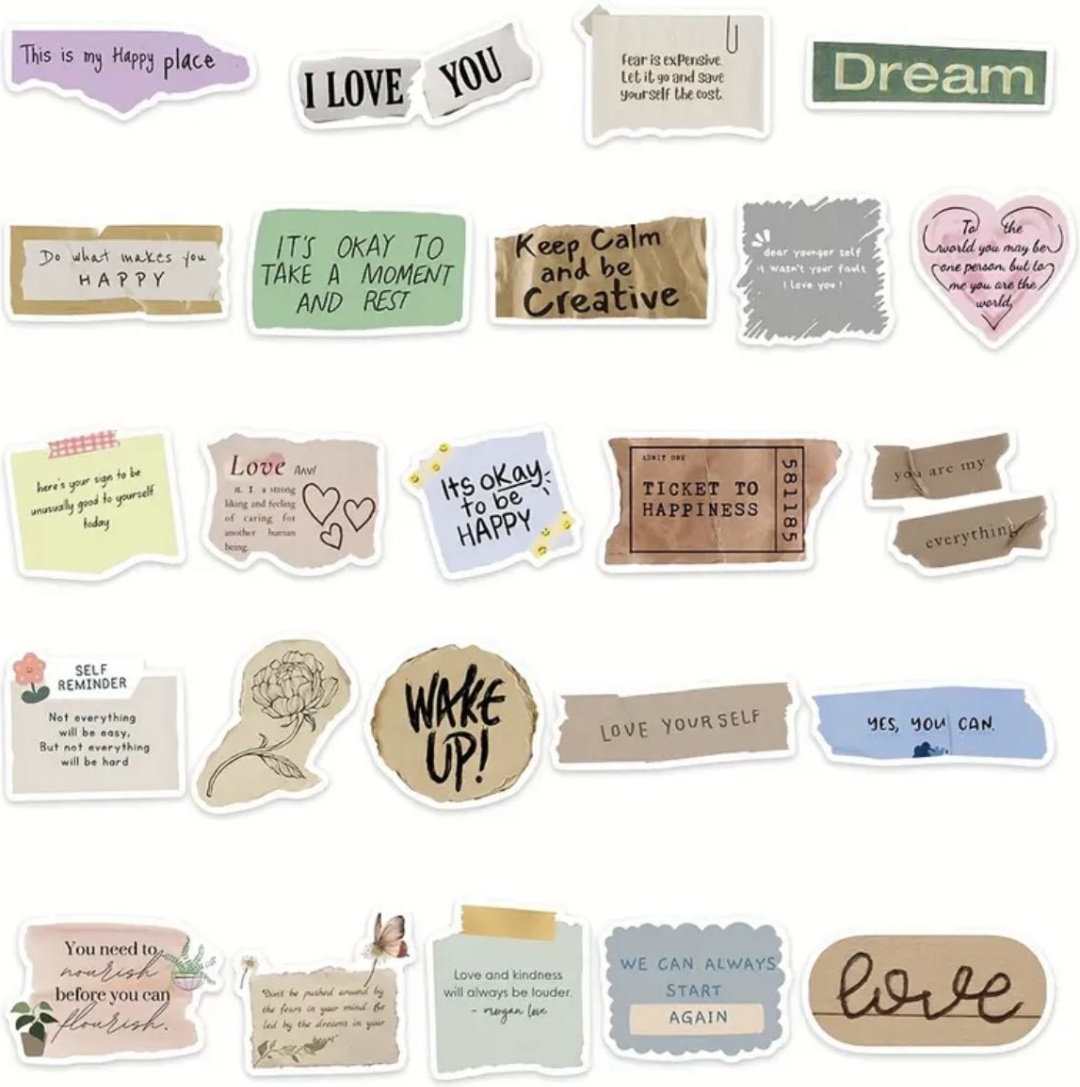 This is my Happy place
I LOVE YOU
fear is expensive.
Let it go and save
yourself the cost.
Dream
Do what makes you
HAPPY
IT'S OKAY TO
TAKE A MOMENT
AND REST
Keep Calm
and be
Creative
dear younger self
it wasn't your fault
I love you!
To the
world you may be
one person, but to
me you are the
world,
here's your sign to be
unusually good to yourself
today
Love /lʌv/
n. 1 a strong
liking and feeling
of caring for
another human
being.
Its okay
to be
HAPPY
ADMIT ONE
TICKET TO
HAPPINESS
581185
you are my
everything
SELF
REMINDER
Not everything
will be easy,
But not everything
will be hard
WAKE
UP!
LOVE YOURSELF
YES, YOU CAN.
You need to
nourish
before you can
flourish.
"Don't be pushed around by
the fears in your mind. Be
led by the dreams in your
Love and kindness
will always be louder.
- morgan love
WE CAN ALWAYS
START
AGAIN
love